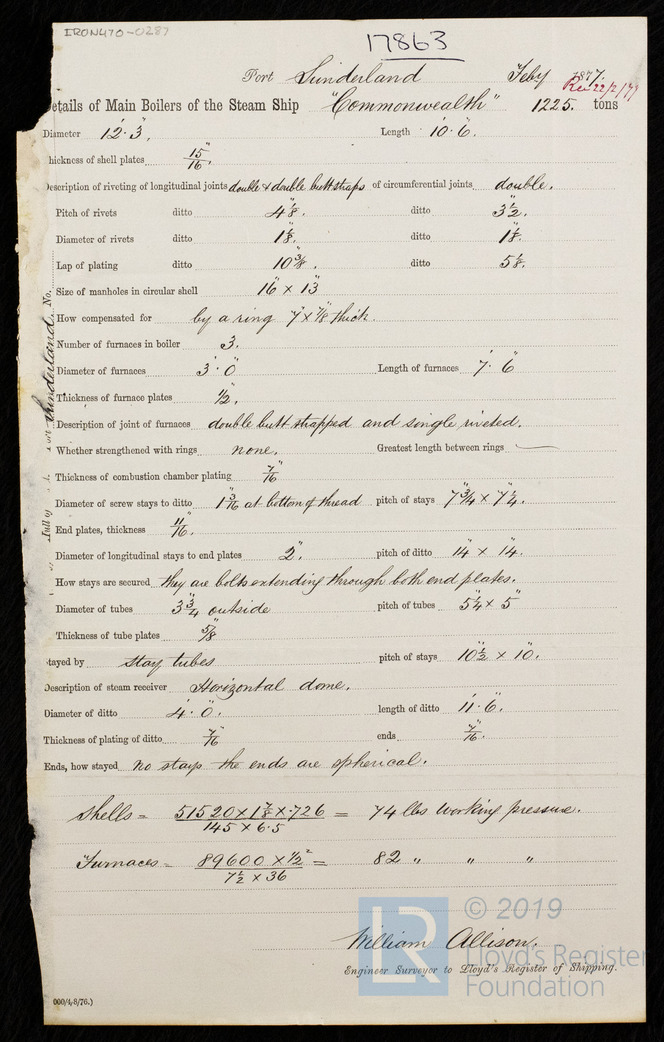 IRON470-0287
17863
Port Sunderland Feby 1877.
Rec 22/2/77
etails of Main Boilers of the Steam Ship "Commonwealth" 1225. tons
Diameter 12'. 3", Length 10'. 6".
hickness of shell plates 15/16".
escription of riveting of longitudinal joints double & double butt straps of circumferential joints double.
Pitch of rivets ditto 4 1/8". ditto 3 1/2".
Diameter of rivets ditto 1 1/8". ditto 1 1/8".
Lap of plating ditto 10 3/8". ditto 5 1/8".
Size of manholes in circular shell 16" x 13"
How compensated for by a ring 7" x 7/8" thick.
Number of furnaces in boiler 3.
Diameter of furnaces 3'. 0" Length of furnaces 7'. 6"
Thickness of furnace plates 1/2".
Description of joint of furnaces double butt strapped and single riveted.
Whether strengthened with rings none. Greatest length between rings
Thickness of combustion chamber plating 7/16"
Diameter of screw stays to ditto 1 3/16" at bottom of thread pitch of stays 7 3/4" x 7 1/4".
End plates, thickness 11/16".
Diameter of longitudinal stays to end plates 2". pitch of ditto 14" x 14".
How stays are secured they are bolts extending through both end plates.
Diameter of tubes 3 3/4" outside pitch of tubes 5 1/4" x 5"
Thickness of tube plates 5/8"
tayed by stay tubes pitch of stays 10 1/2" x 10".
escription of steam receiver Horizontal dome.
Diameter of ditto 4'. 0". length of ditto 11'. 6".
Thickness of plating of ditto 7/16" ends 7/16".
Ends, how stayed no stays the ends are spherical.
Shells = 51520 x 1 7/8 x .726 / 145 x 6.5 = 74 lbs working pressure.
Furnaces = 89600 x 1/2² / 7 1/2 x 36 = 82 " " "
William Allison.
Engineer Surveyor to Lloyd's Register of Shipping.
000/4/8/76.)
No.
Sunderland
Hull of
LR
© 2019
Lloyd's Register
Foundation